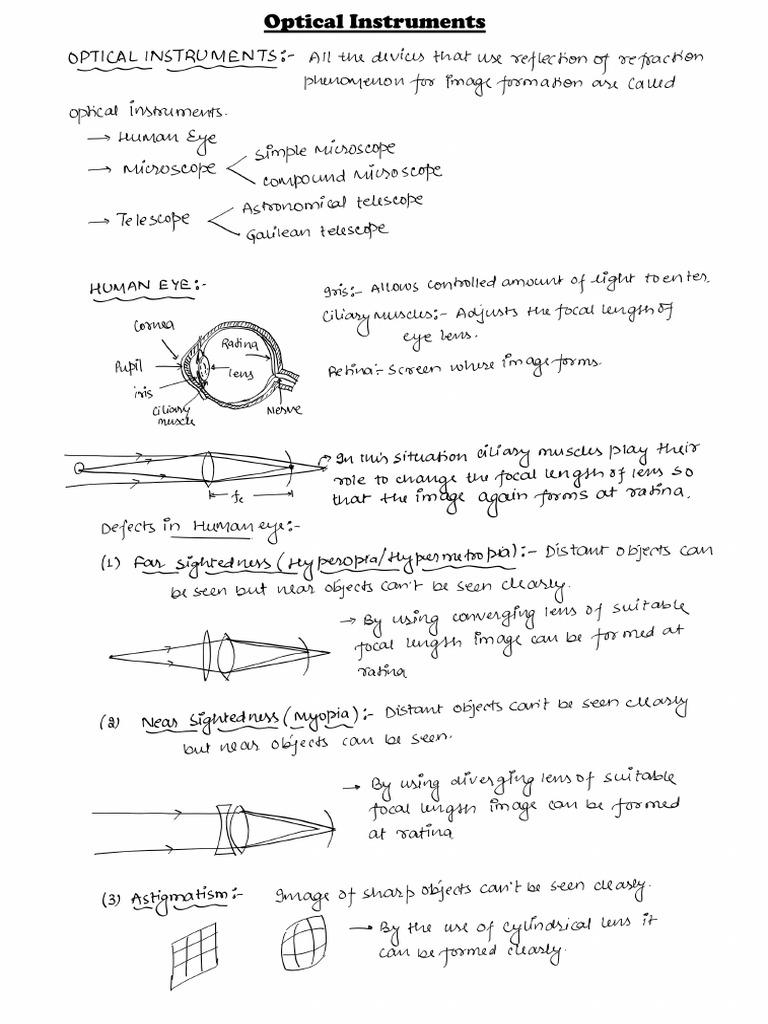 Optical Instruments
OPTICAL INSTRUMENTS:- All the devices that use reflection of refraction
phenomenon for image formation are called
optical instruments.
→ Human Eye
→ Microscope
Simple microscope
compound microscope
→ Telescope
Astronomical telescope
Galilean telescope
HUMAN EYE:-
Iris:- Allows controlled amount of light to enter.
Ciliary Muscles:- Adjusts the focal length of
eye lens.
Retina:- Screen where image forms.
Cornea
Ratina
Pupil
lens
iris
ciliary
muscle
Nerve
In this situation ciliary muscles play their
role to change the focal length of lens so
that the image again forms at ratina.
fe
Defects in Human eye:-
(1) Far sightedness (Hyperopia/Hypermetropia):- Distant objects can
be seen but near objects can't be seen clearly.
→ By using converging lens of suitable
focal length image can be formed at
ratina
(2) Near sightedness (Myopia):- Distant objects can't be seen clearly
but near objects can be seen.
→ By using diverging lens of suitable
focal length image can be formed
at ratina
(3) Astigmatism:- Image of sharp objects can't be seen clearly.
→ By the use of cylindrical lens it
can be formed clearly.